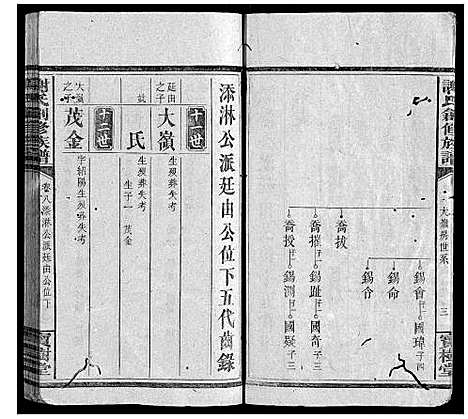 謝氏創修族譜
大嶺房世系
三
寶樹堂
喬拔
喬摧
喬授
錫會
錫命
錫令
錫趾
錫測
國瑋 子四
國奇 子三
國疑 子三
添淋公派廷由公位下五代齒錄
十一世
廷由之子
大嶺
生歿葬失考
氏
生歿葬失考
生子一 茂金
十二世
大嶺之子
茂金
字紹陽生歿葬失考
謝氏創修族譜
卷八添淋公派廷由公位下
寶樹堂